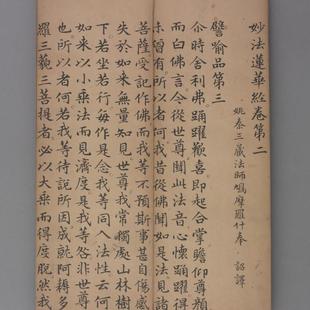 妙法蓮華經卷第二
姚秦三藏法師鳩摩羅什奉 詔譯
譬喻品第三
尒時舍利弗踊躍歡喜即起合掌瞻仰尊顏
而白佛言今從世尊聞此法音心懷踊躍得
未曾有所以者何我昔從佛聞如是法見諸
菩薩受記作佛而我等不預斯事甚自感傷
失於如來無量知見世尊我常獨處山林樹
下若坐若行每作是念我等同入法性云何
如來以小乘法而見濟度是我等咎非世尊
也所以者何若我等待說所因成就阿耨多
羅三藐三菩提者必以大乘而得度脫然我